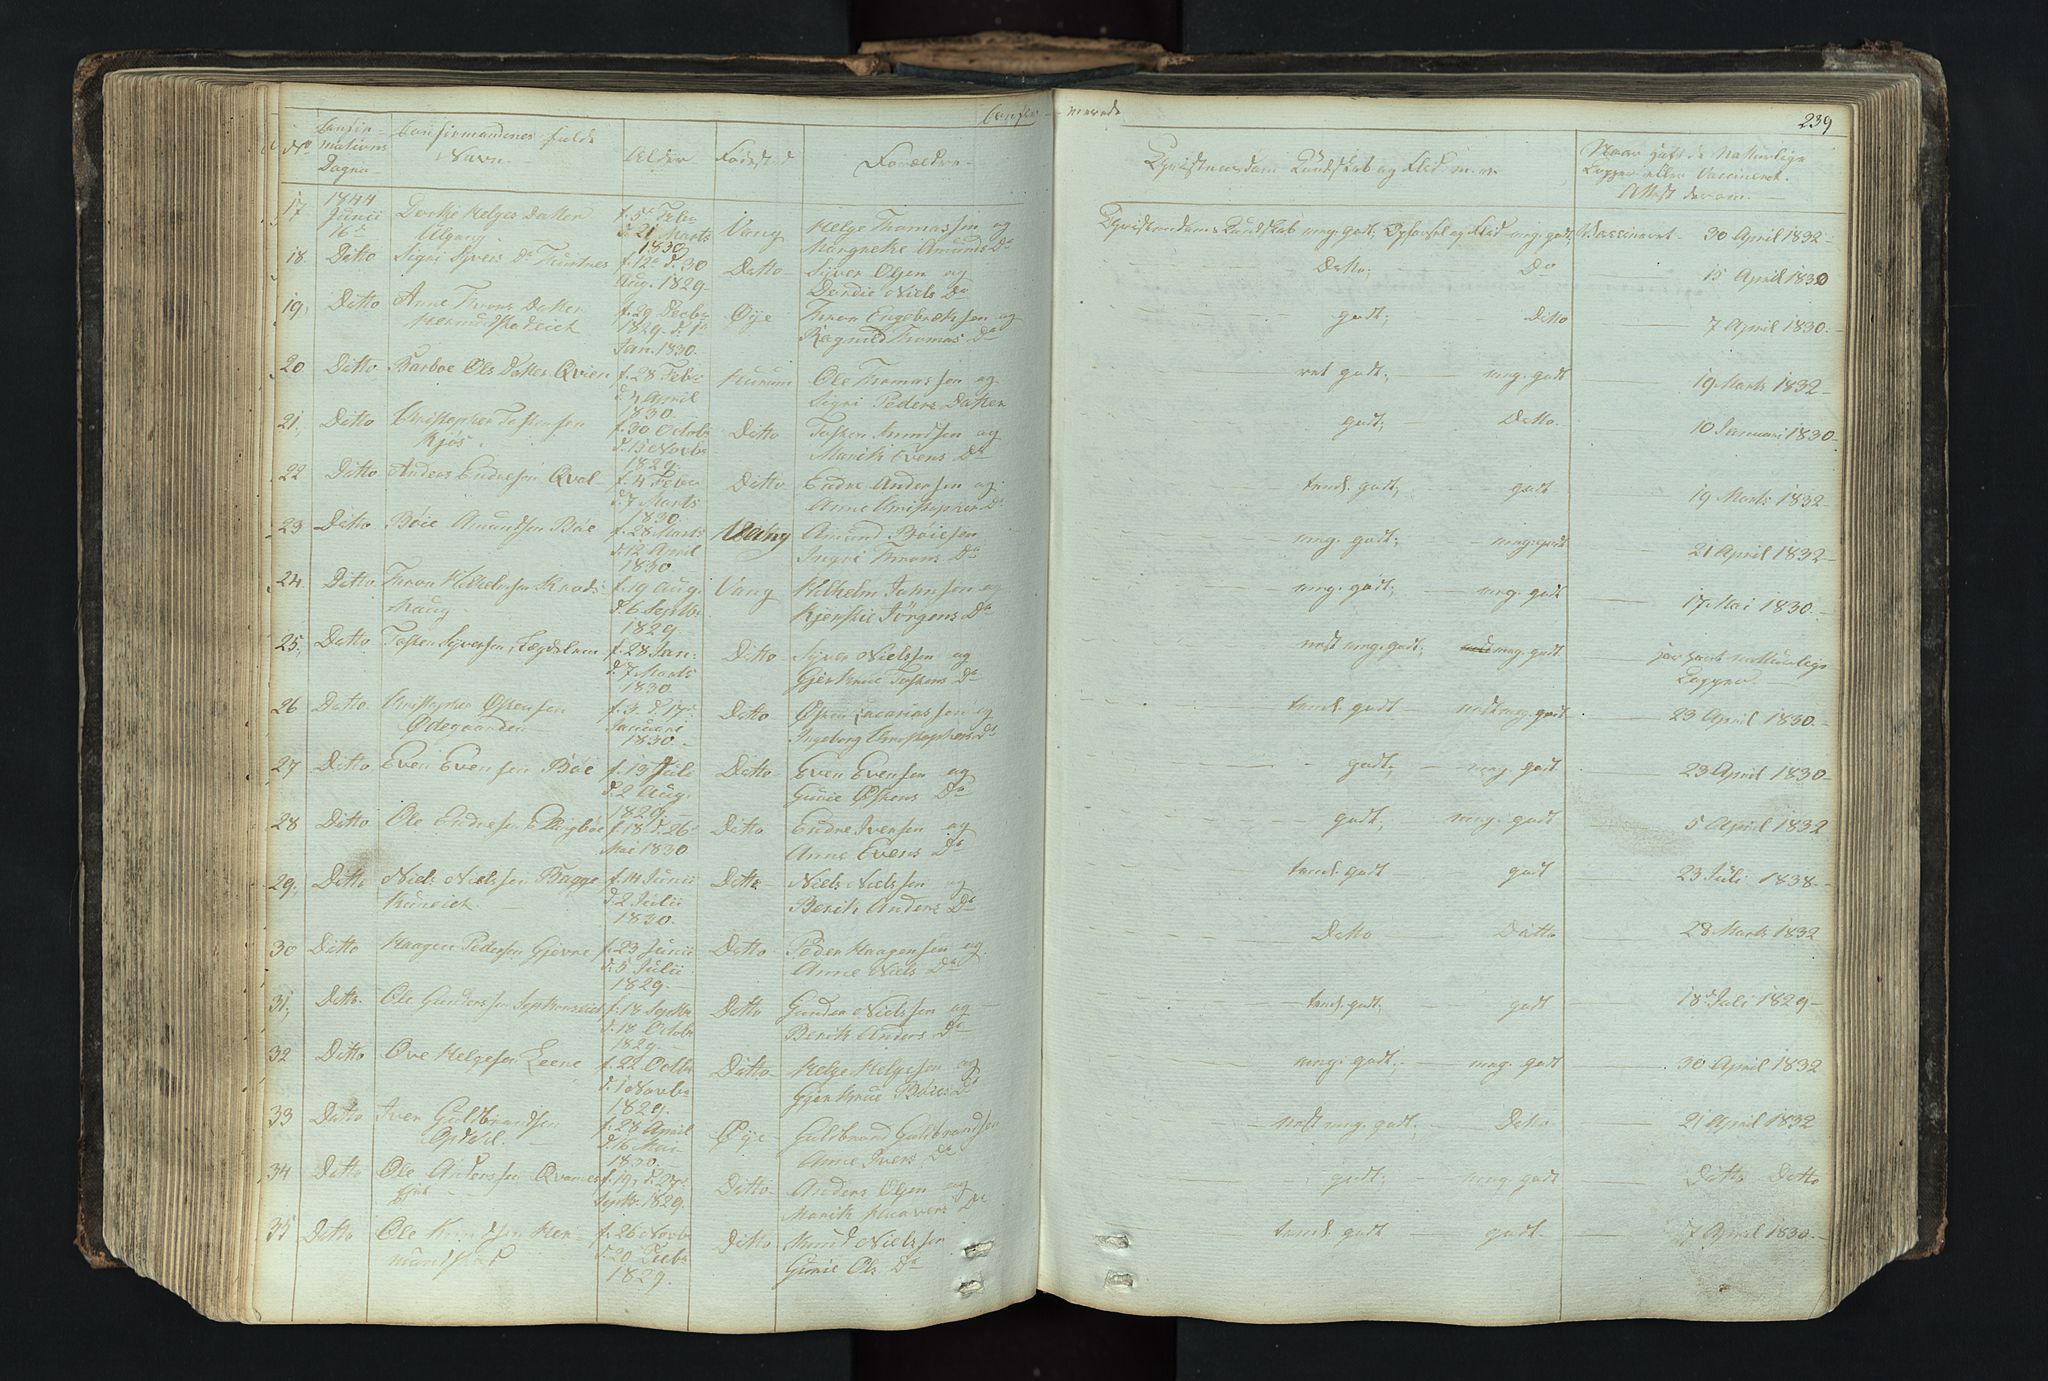 Confir- merede
239
No Confir- mations Dagen Confirmandenes fulde Navn. Alder Fødested Forældre. Christendoms Kundskab og Flid m. v. Naar havt de Naturlige Kopper eller Vaccineret. Attest derom.
17. 1844 Junii 16de Helges Datter f. 5 Febr d. 21 Marts 1830 Vang Helge Thomassen og Margrethe Amunds Dr Christendoms Kundskab mg. godt. Opførsel og Flid mg. godt. Vaccineret 30 April 1832
18. Ditto Sigri Syvers Dr f. 12 d. 30 Aug. 1829 Ditto Syver Olsen og Dordie Niels Dr Ditto; Do 15 April 1830
19, Ditto Anne Throns Datter f. 29 Decbr 1829 d. 1 Jan. 1830. Øye Thron Engebrethsen og Ragnild Thomas Dr godt; Ditto 7 April 1830.
20 Ditto Barboe Ols Datter Qvien f. 28 Febr d. 4 April 1830. Hurum Ole Thomassen og Sigri Peders Datter ret godt; mg. godt 19 Marts 1832
21, Ditto Christopher Tostensen Kjös. f. 30 Octobr d. 15 Novbr 1829. Ditto Tosten Arnesen og Marith Evens Dr godt; Ditto. 10 Januari 1830
22 Ditto Anders Endresen Qval f. 4 Febr d. 7 Marts 1830 Ditto Endre Andersen og Anne Christophers Dr temel. godt; godt 19 Marts 1832
23 Ditto Böie Amundsen Böe f. 28 Marts d. 12 April 1830 Vang Amund Böiesen Ingri Throns Dr mg. godt; mg. godt 21 April 1832
24. Ditto Thron Vilhelmsen f. 19 Aug. d. 6 Septbr 1829 Vang Vilhelm Johnsen og Kjerstie Jörgens Dr mg. godt; mg. godt 17. Mai 1830.
25, Ditto Tosten Syversen, f. 28 Jan: d. 7 Marts 1830. Ditto Syver Nielssen og Gjertrue Tostens Dr næst mg. godt; mg. godt har havt naturlige Kopper.
26 Ditto Christopher Østensen Ødegaarden f. 3 d. 17 Januari 1830 Ditto Østen Zacariassen og Ingeborg Christophers Dr temel. godt næst mg. godt 23 April 1830.
27 Ditto Even Evensen Böe f. 13 Juli d. 2 Aug. 1829. Ditto Even Evensen og Gunie Østens Dr godt; mg. godt 23 April 1830
28 Ditto Ole Endresen Ellingböe f. 18 d. 26 Mai 1830 Ditto Endre Iversen og Anne Evens Dr godt; mg. godt 5 April 1832
29, Ditto Niels Nielssen Bagge f. 14 Junii d. 2 Julii 1830. Ditto Niels Nielssen og Berith Anders Dr temel. godt godt 23 Juli 1838
30 Ditto Haagen Pedersen Gjevre f. 23 Junii d. 5 Julii 1829. Ditto Peder Haagensen og Anne Niels Dr Ditto Ditto 28 Marts 1832
31, Ditto Ole Gundersen f. 18 Septbr d. 18 Octobr 1829. Ditto Gunder Nielssen og Berith Anders Dr temel. godt; godt 18 Juli 1829
32 Ditto Ove Helgesen Leene f. 22 Octbr d. 1 Novbr 1829. Ditto Helge Helgesen og Gjertrue Böies Dr mg. godt; mg. godt 30 April 1832
33 Ditto Iver Guldbrandsen Opdal. f. 28 April d. 16 Mai 1830. Øye Guldbrand Guldbrandsen Anne Ivers Dr næst mg. godt; Ditto 21 April 1832
34 Ditto Ole Anderssen f. 19, d. 27 Septbr. 1829. Ditto Anders Olsen og Marith Haavers Dr godt; mg. godt Ditto Ditto
35 Ditto Ole Knudsen Hermundstad f. 26 Novbr d. 20 Decbr 1829. Ditto Knud Nielssen Gunie Ols Dr temel. godt godt. 7 April 1830.